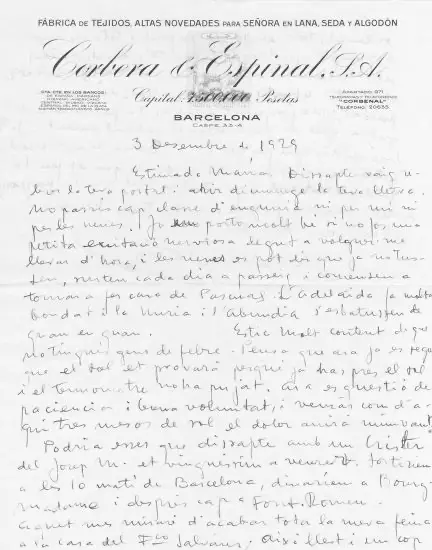 FÁBRICA DE TEJIDOS, ALTAS NOVEDADES PARA SEÑORA EN LANA, SEDA Y ALGODÓN
Corbera & Espinal, S.A.
Capital: 1.500.000 Pesetas
CTA. CTE. EN LOS BANCOS:
APARTADO, 971
"CORBENAL"
TELÉFONO, 20635
BARCELONA
CASPE 33-A
3 Desembre de 1929
Estimada Maria: Dissapte vaig re-
bre la teva postal i ahir diumenge la teva lletra.
No passis cap classe d'engunia ni per mi ni
per les nenes. Jo em porto molt bé si no fos una
petita exitació nerviosa degut a volguer-me
llevar d'hora, i les nenes es pot dir que ja no tus-
sen, surten cada dia a passeig i comensen a
tornar a fer cara de Pasquas. L'Adelaida fa molta
bondat i la Nuria i l'Abundia s'esbatussen de
quan en quan. Estic molt content de que
no tinguis gens de febre. Pensa que ara ja es segur
que el sol et provarà perque ja has pres el sol
i el termometre no ha pujat. Ara es questió de
paciencia i bona voluntat, i veuràs com d'a-
qui tres mesos de sol el dolor anirà minvant.
Podria esser que dissapte amb un
del Josep M. et vinguessim a veure. Sortiriem
a les 10 mati de Barcelona, dinariem a Bourg-
madame i després cap a Font-Romeu.
Aquet mes miraré d'acabar tota la meva feina
a la casa del Fco Salvans. Aixi llest i un cop